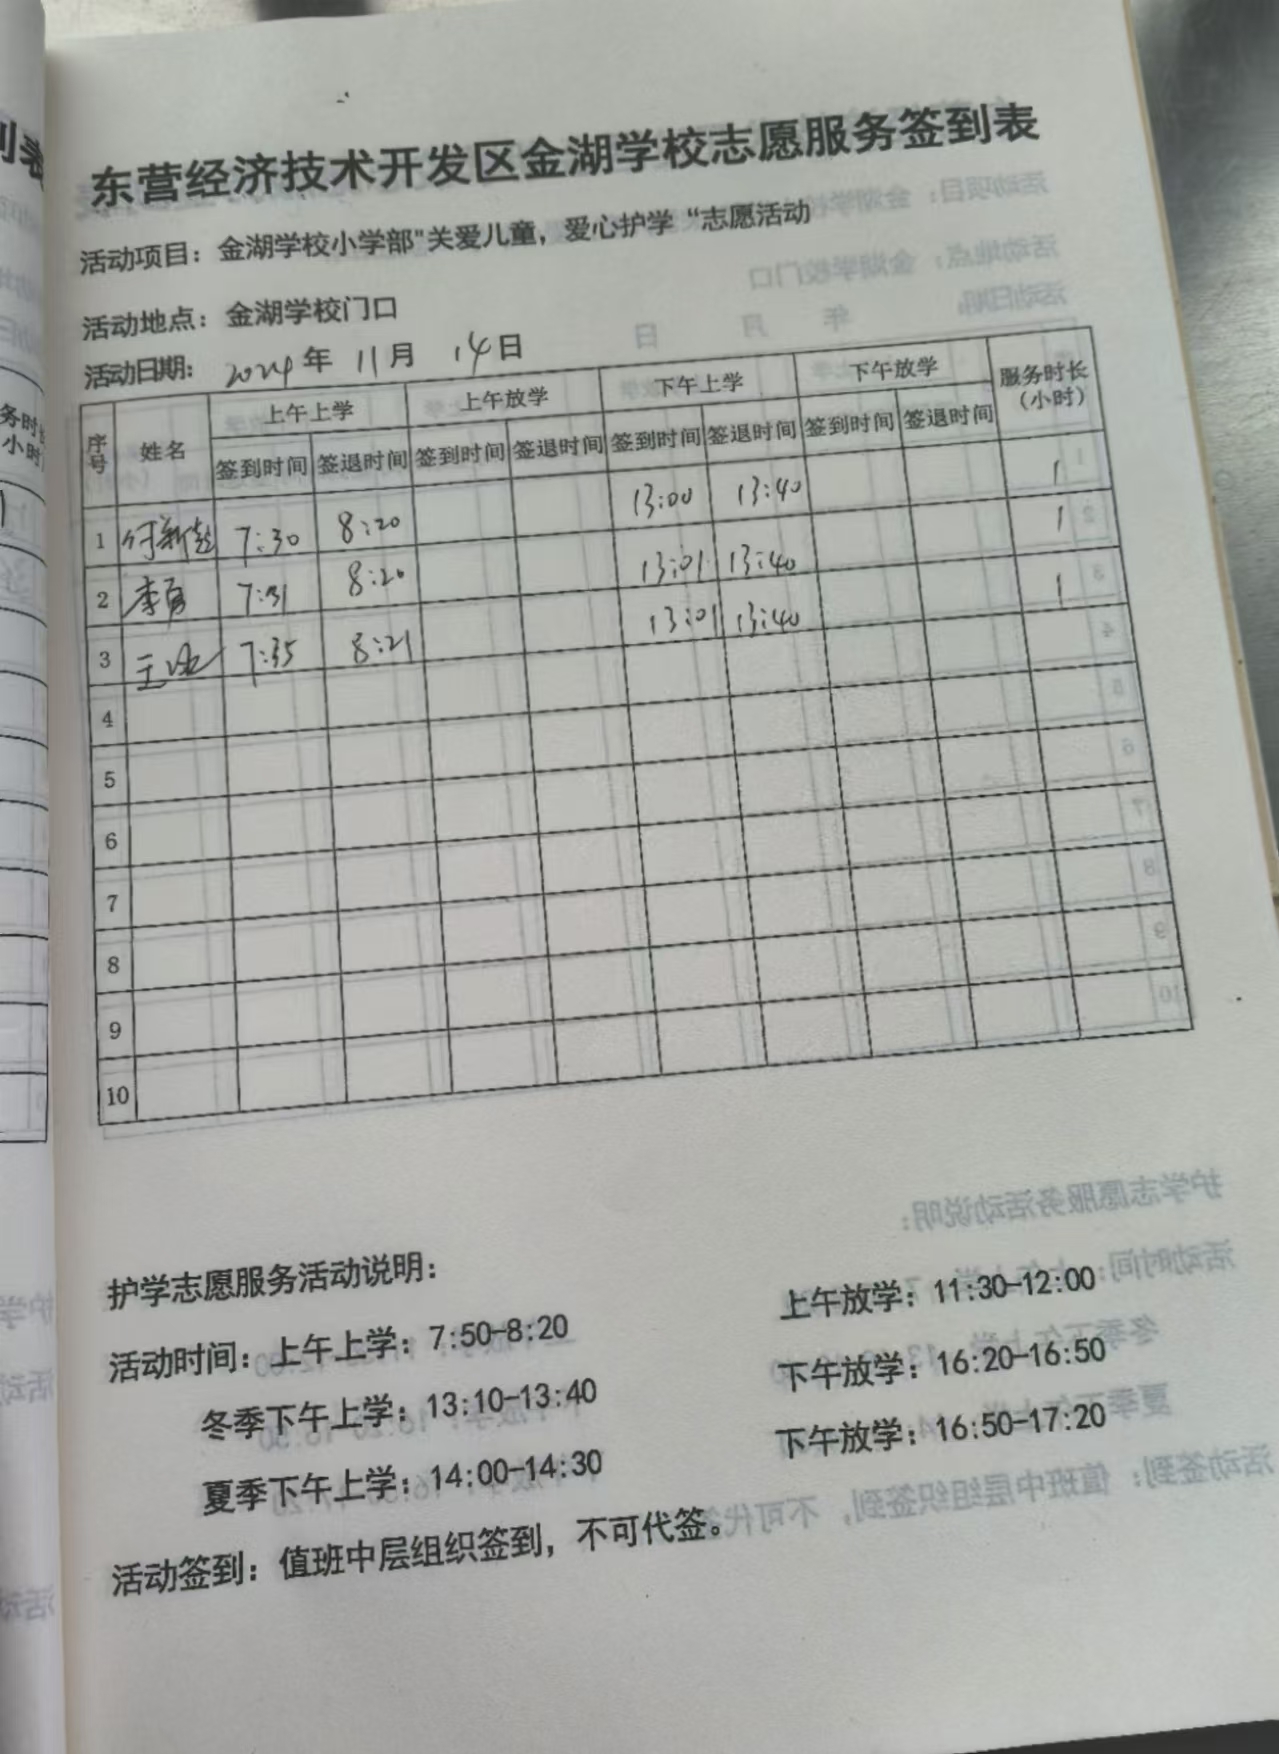 东营经济技术开发区金湖学校志愿服务签到表
活动项目：金湖学校小学部"关爱儿童，爱心护学“志愿活动
活动地点：金湖学校门口
活动日期： 2024 年 11 月 14 日
序号 姓名 上午上学 上午放学 下午上学 下午放学 服务时长（小时）
签到时间 签退时间 签到时间 签退时间 签到时间 签退时间 签到时间 签退时间
1 7:30 8:20 13:00 13:40 1
2 李勇 7:31 8:20 13:01 13:40 1
3 7:35 8:21 13:01 13:40 1
4
5
6
7
8
9
10
护学志愿服务活动说明：
活动时间：上午上学：7:50-8:20 上午放学：11:30-12:00
冬季下午上学：13:10-13:40 下午放学：16:20-16:50
夏季下午上学：14:00-14:30 下午放学：16:50-17:20
活动签到：值班中层组织签到，不可代签。